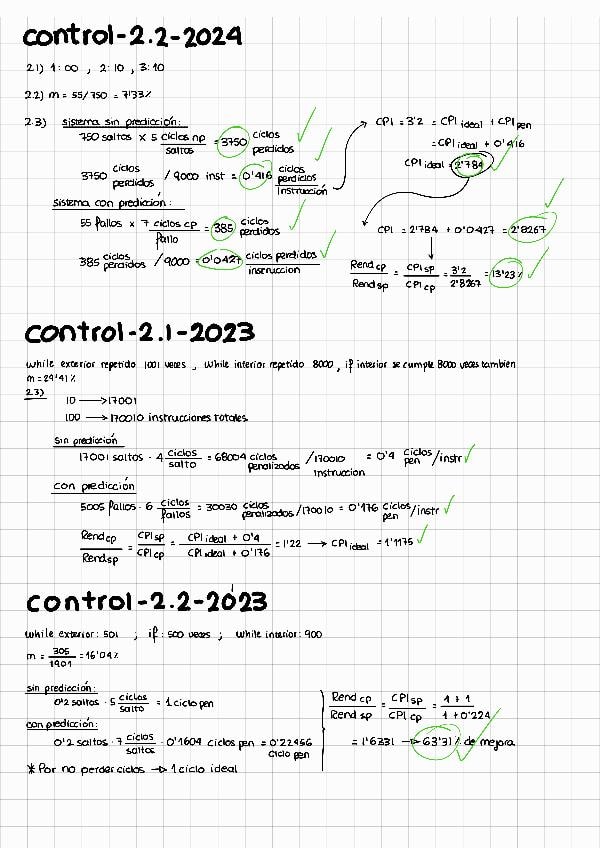 control-2.2-2024
2.1) 1:00 , 2:10 , 3:10
2.2) m = 55/750 = 7'33%
2.3) sistema sin predicción:
750 saltos x 5 ciclos np/saltos = 3750 ciclos perdidos
3750 ciclos perdidos / 9000 inst = 0'416 ciclos perdidos/instrucción
sistema con predicion:
55 fallos x 7 ciclos cp/fallo = 385 ciclos perdidos
385 ciclos perdidos / 9000 = 0'0427 ciclos perdidos/instruccion
CPI = 3'2 = CPI ideal + CPI pen
= CPI ideal + 0'416
CPI ideal = 2'784
CPI = 2'784 + 0'0427 = 2'8267
Rend cp/Rend sp = CPI sp/CPI cp = 3'2/2'8267 = 13'23%
control-2.1-2023
While exterior repetido 1001 veces , While interior repetido 8000 , if interior se cumple 8000 veces tambien
m = 29'41%
2.3) 10 → 17001
100 → 170010 instrucciones totales
sin predicción
17001 saltos · 4 ciclos/salto = 68004 ciclos penalizados / 170010 instruccion = 0'4 ciclos pen /instr
con predicción
5005 fallos · 6 ciclos/fallos = 30030 ciclos penalizados / 170010 = 0'176 ciclos pen /instr
Rend cp/Rend sp = CPI sp/CPI cp = CPI ideal + 0'4/CPI ideal + 0'176 = 1'22 → CPI ideal = 1'1175
control-2.2-2023
while exterior: 501 ; if: 500 veces ; while interior: 900
m = 305/1901 = 16'04%
sin predicción:
0'2 saltos · 5 ciclos/salto = 1 ciclo pen
con predicción:
0'2 saltos · 7 ciclos/saltos · 0'1604 ciclos pen = 0'22456 ciclo pen
* Por no perder ciclos → 1 ciclo ideal
Rend cp/Rend sp = CPI sp/CPI cp = 1 + 1/1 + 0'224
= 1'6331 → 63'31% de mejora